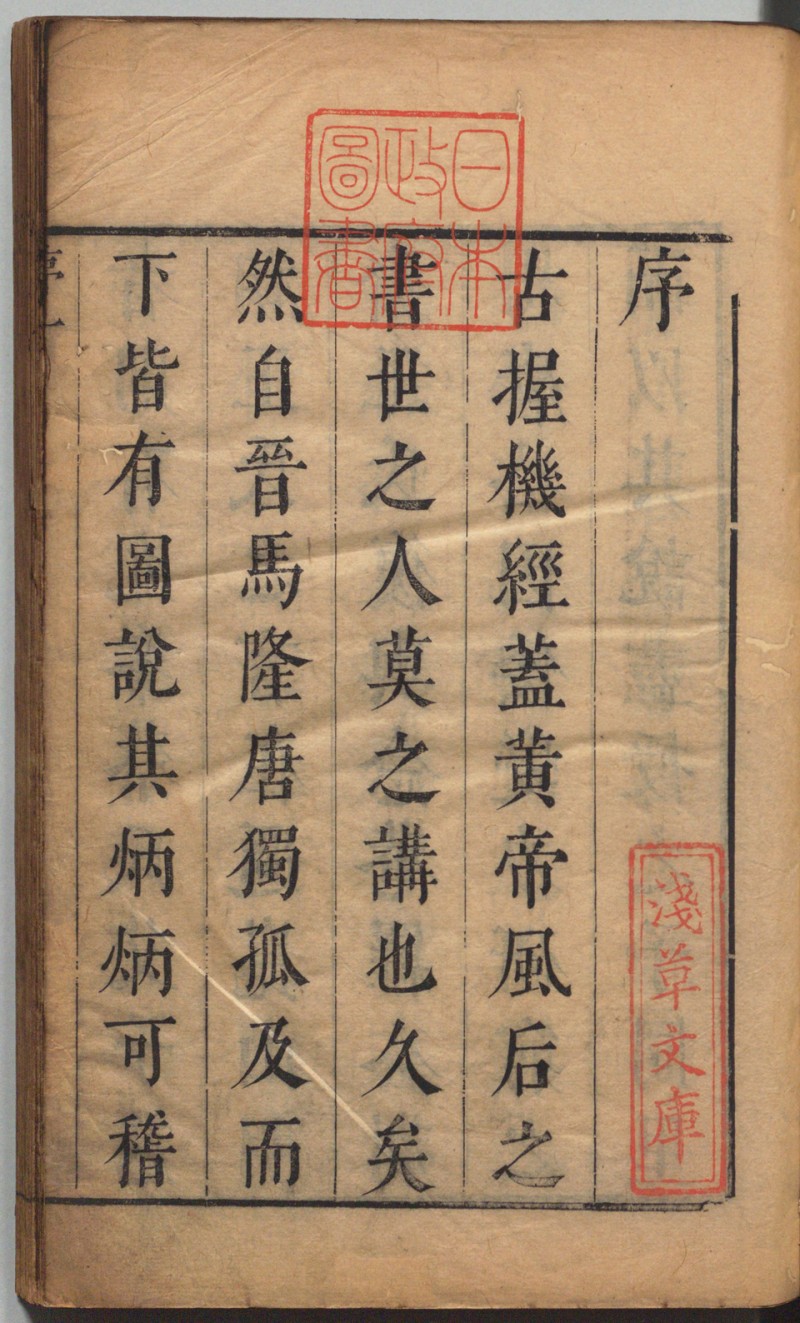 序
古握機經蓋黄帝風后之
書世之人莫之講也久矣
然自晉馬隆唐獨孤及而
下皆有圖說其炳炳可稽
日本
政府
圖書
淺草文庫